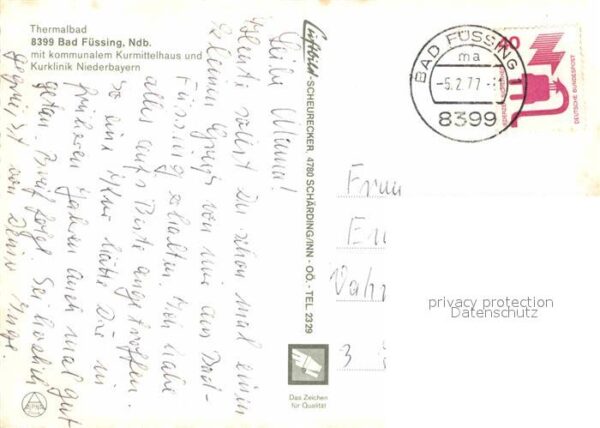 Thermalbad
8399 Bad Füssing, Ndb.
mit kommunalem Kurmittelhaus und
Kurklinik Niederbayern
Liebe Mama!
Heute sollst Du schon mal einen
kleinen Gruß von mir aus Bad-
Füssing erhalten. Ich habe
alles aufs Beste angetroffen.
So eine Kur hätte Dir in
früheren Jahren auch mal gut
getan. Brief folgt. Sei herzlich
gegrüßt von Deiner Inge.
Luftbild-SCHEURECKER 4780 SCHÄRDING/INN - OÖ. - TEL 2329
Das Zeichen
für Qualität
BAD FÜSSING
ma
-5.2.77-
8399
40
DEUTSCHE BUNDESPOST
Frau
Vahr
3
privacy protection
Datenschutz